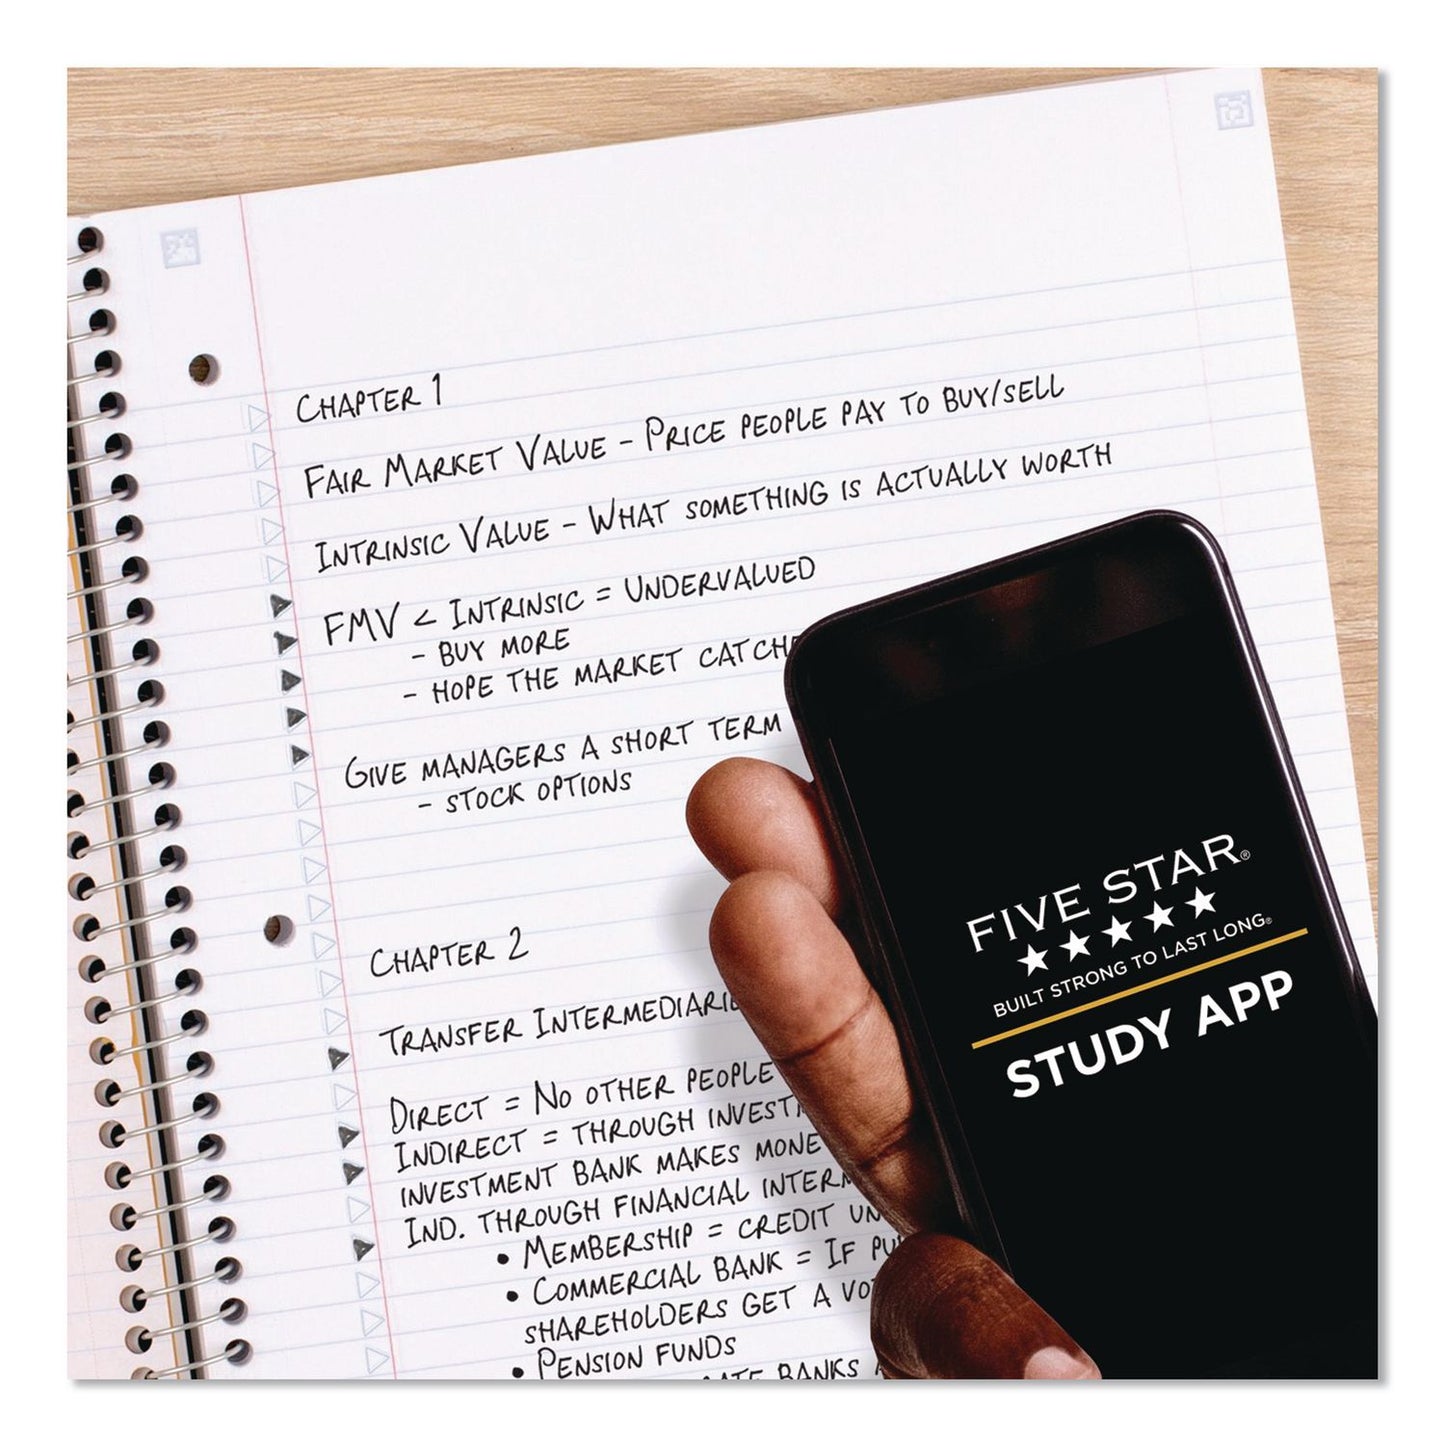 CHAPTER 1
FAIR MARKET VALUE - PRICE PEOPLE PAY TO BUY/SELL
INTRINSIC VALUE - WHAT SOMETHING IS ACTUALLY WORTH
FMV < INTRINSIC = UNDERVALUED
- BUY MORE
- HOPE THE MARKET
GIVE MANAGERS A SHORT TERM
- STOCK OPTIONS
CHAPTER 2
TRANSFER
DIRECT = NO OTHER PEOPLE
INDIRECT = THROUGH
INVESTMENT BANK MAKES
IND. THROUGH FINANCIAL
• MEMBERSHIP = CREDIT
• COMMERCIAL BANK = IF
SHAREHOLDERS GET A
• PENSION FUNDS
BANKS
FIVE STAR®
★★★★★
BUILT STRONG TO LAST LONG®
STUDY APP